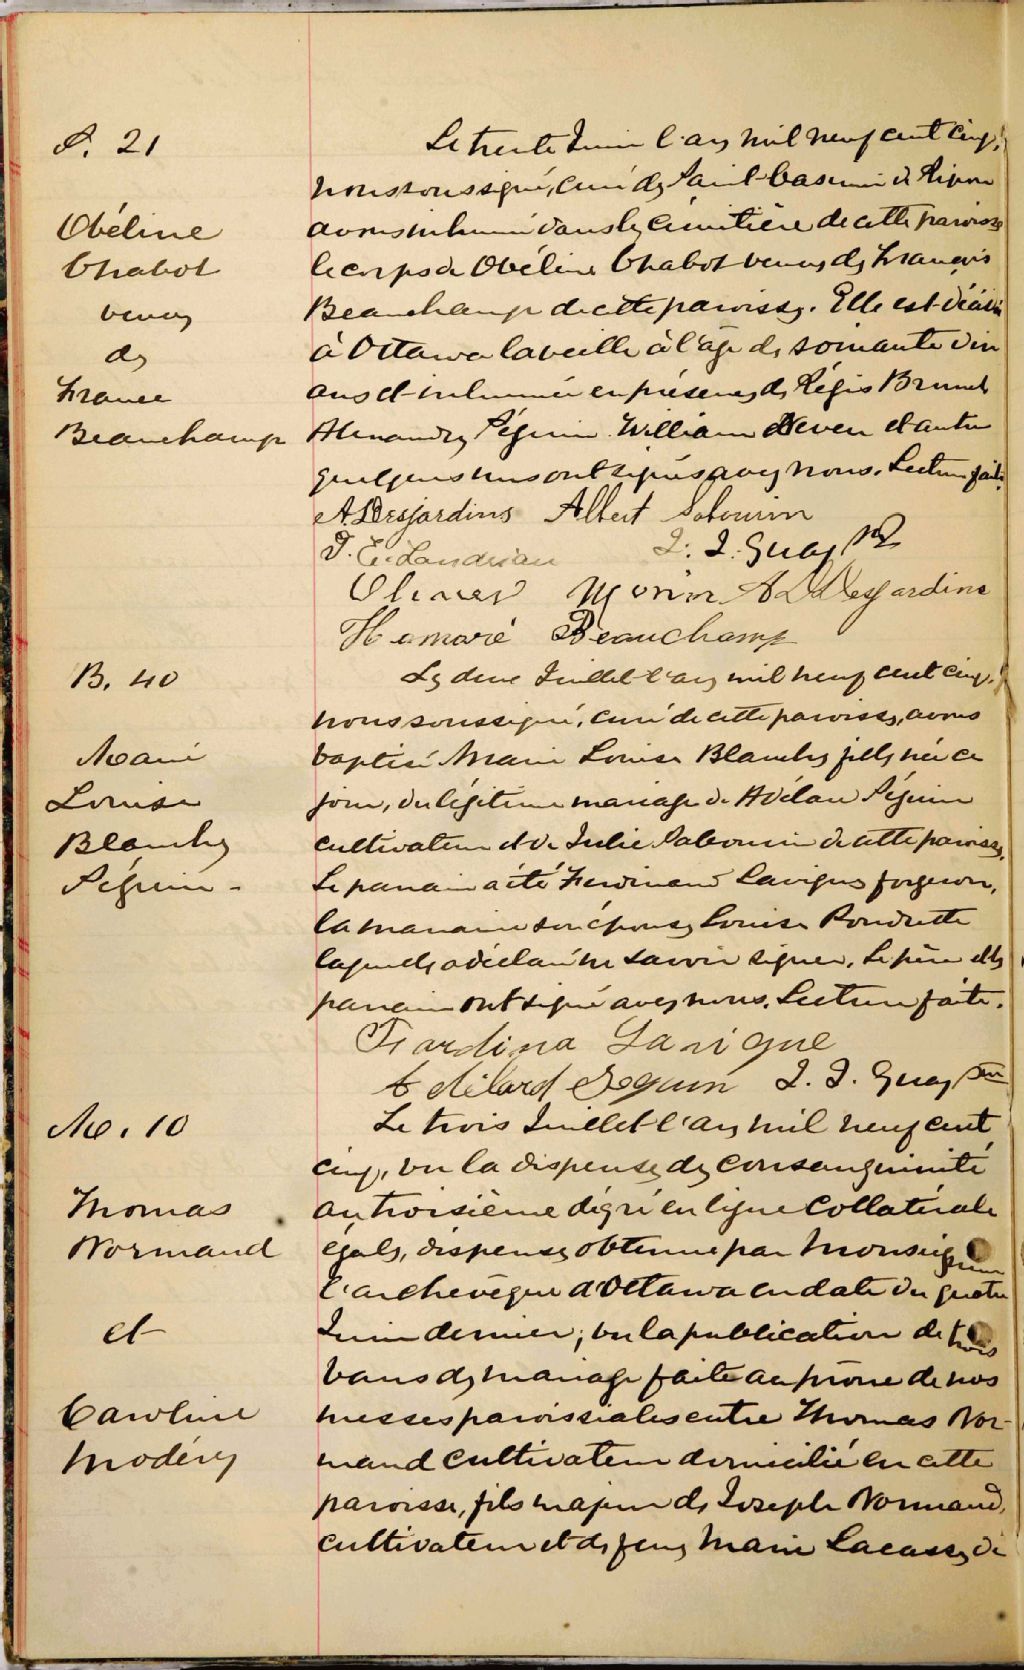 S. 21
Obéline
Chabot
veuve
de
France
Beauchamp
Le trente Juin l'an mil neuf cent cinq,
nous soussigné, curé de Saint-Casimir de Ripon
avons inhumé dans le cimitière de cette paroisse
le corps de Obéline Chabot veuve de François
Beauchamp de cette paroisse. Elle est décédée
à Ottawa la veille à l'âge de soixante
ans et inhumée en présence de Régis Brunet
Alexandre Séguin William et autres
quelques uns ont signés avec nous. Lecture faite.
A. Desjardins Albert Sabourin
J. E. Landriau J. J. Guay Ptre
Olivier Morin A. D. Desjardins
Hemaré Beauchamp
B. 40
Marie
Louise
Blanche
Séguin -
Le deux Juillet l'an mil neuf cent cinq,
nous soussigné, curé de cette paroisse, avons
baptisé Marie Louise Blanche fille née ce
jour, du légitime mariage de Adélard Séguin
cultivateur et de Julie Sabourin de cette paroisse.
Le parrain a été Ferdinand Lavigne forgeron,
la marraine son épouse Louise Rondrette
laquelle a déclaré ne savoir signer. Le père et le
parrain ont signé avec nous. Lecture faite.
Fardina Lavigne
Adélard Seguin J. J. Guay Ptre
M. 10
Thomas
Normand
et
Caroline
Modéry
Le trois Juillet l'an mil neuf cent
cinq, vu la dispense de consanguinité
au troisième dégré en ligne collatérale
égale, dispense obtenue par Monseigneur
l'archevêque d'Ottawa en date du quatre
Juin dernier; vu la publication de trois
bans de mariage faite au prône de nos
messes paroissiales entre Thomas Nor-
mand cultivateur domicilié en cette
paroisse, fils majeur de Joseph Normand,
cultivateur et de feue Marie Lacasse, de